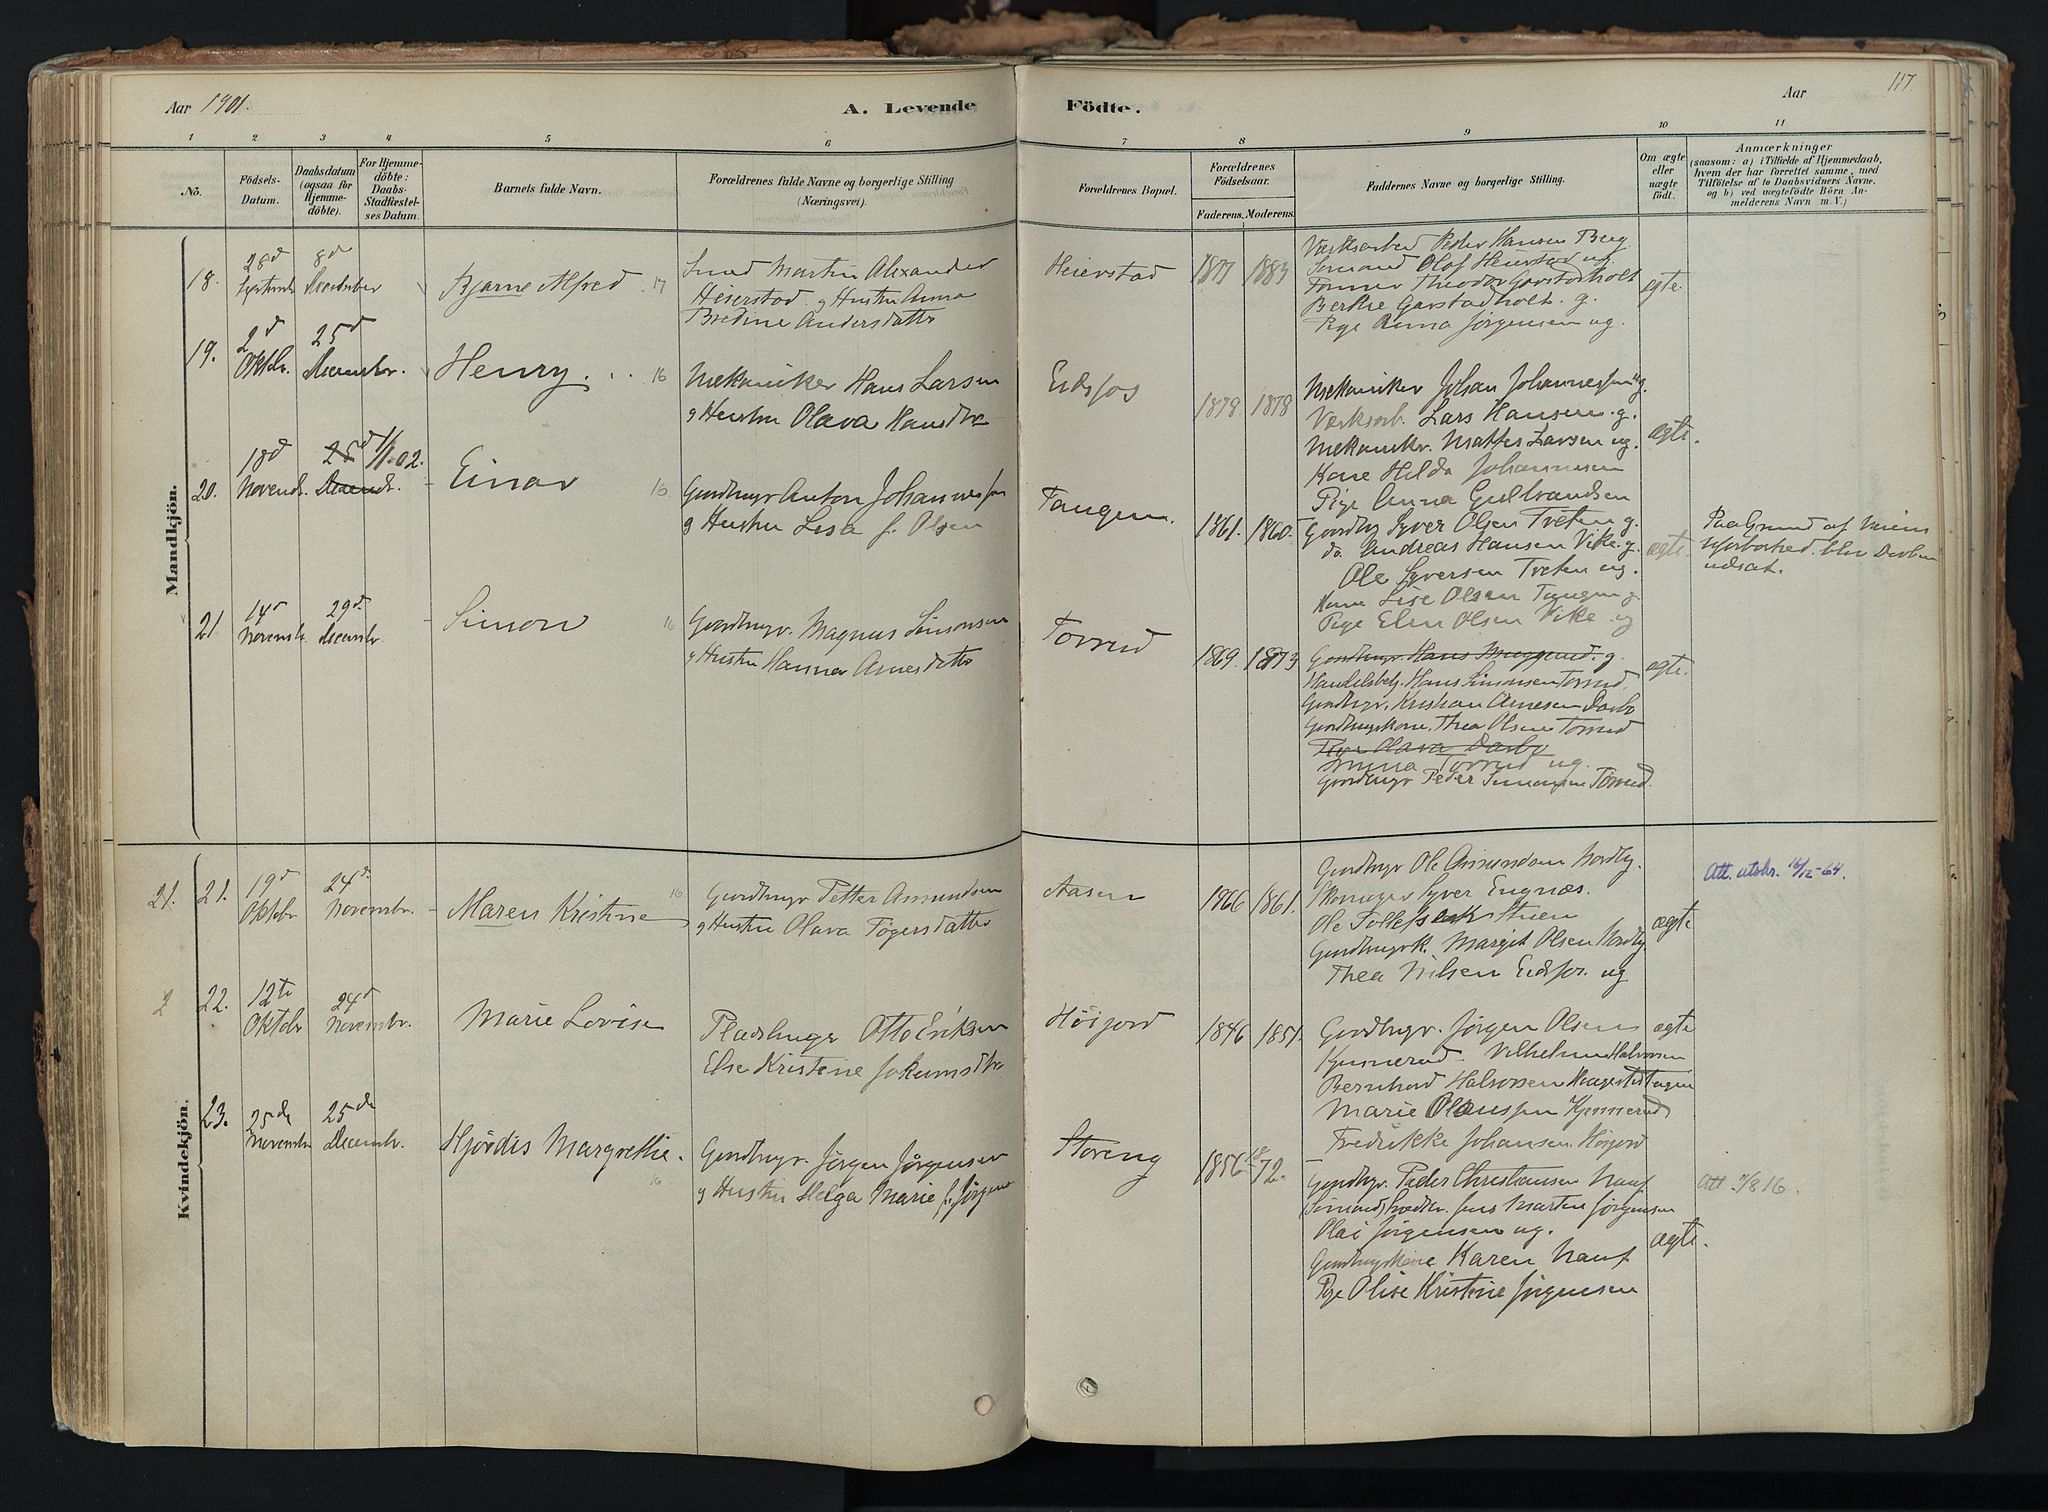 Aar 1901.
A. Levende
Födte.
Aar
117
1 2 3 4 5 6 7 8 9 10 11
No.
Födsels-
Datum.
Daabsdatum
(ogsaa for
Hjemme-
döbte).
For Hjemme-
döbte:
Daabs-
Stadfæstel-
ses Datum.
Barnets fulde Navn.
Forældrenes fulde Navne og borgerlige Stilling
(Næringsvei).
Forældrenes Bopæl.
Forældrenes
Födselsaar.
Faderens. Moderens.
Faddernes Navne og borgerlige Stilling.
Om ægte
eller
uægte
födt.
Anmærkninger
(saasom: a) i Tilfælde af Hjemmedaab,
hvem der har forrettet samme, med
Tilföielse af to Daabsvidners Navne.
og b) ved uægtefödte Börn An-
melderens Navn m. V.)
Mandkjön.
18.
28d
8d
Bjarne Alfred
17
Smed Martin Alexander
Heierstad og Hustru Anna
Bredine Andersdatter
Heierstad
1877
1883
Værksarbed Peder Hansen Berg
Sømand Olof Heierstad ug.
Theodor Gavstadholt
Berthe Gavstadholt. g.
Pige Anna Jørgensen ug.
ægte.
19.
2d
Oktbr.
25d
Decembr.
Henry
16
Mekaniker Hans Larsen
og Hustru Olava Hansdtr
Eidsfos
1878.
1878
Mekaniker Johan Johannessen g.
Værksarb. Lars Hansen. g.
Mekanikr. Mathes Larsen ug.
Kone Hilda Johannesen
Pige Anna Gulbrandsen
ægte.
20.
18d
Novembr
25d
Decembr.
1/1.02.
Einar
16
Gaardbrgr Anton Johannessen
og Hustru Lisa f. Olsen
Tangen.
1861.
1860.
Gaardbrg Syver Olsen Tveten g.
do. Andreas Hansen Vike. g.
Ole Syversen Tveten ug.
Kone Lise Olsen Tangen g
Pige Elen Olsen Vike ug
ægte.
Paa Grund af Veiens
Uforbarhed blev Daaben
udsat.
21
14d
Novembr.
29d.
Decembr.
Simon
16
Gaardbrgr. Magnus Simonsen
og Hustru Hanna Arnesdatter
Torrud
1869.
1873
Gaardbrgr. Hans Bruggerud. g.
Handelsbetj. Hans Simonsen Torrud
Gaardbrgr. Kristian Arnesen Darbo
Gaardbrgrkone. Thea Olsen Torrud
Pige Olava Darbo
Torrud ug.
Gaardbrgr Peder Simonsen Torrud.
ægte.
Kvindekjön.
21.
21.
19d
Oktobr
24d.
Novembr.
Maren Kristine
16
Gaardbrugr Petter Asmundsen
og Hustru Olava Tøgersdatter
Aasen
1866
1861.
Gaardbrugr Ole Asmundsen Nordby.
Skomager Syver Engnæs.
Ole Tollefsen Stuen
Gaardbrugrk. Margit Olsen Nordby
Thea Nilsen Eidsfos. ug
ægte
Att. utskr. 16/12-64.
2
22.
12te
Oktobr
24d
Novembr.
Marie Lovise
Pladsbruger Otto Eriksen
Else Kristine Jokumsdtr
Høijord
1846
1851.
Gaardbrugr. Jørgen Olsen
Kjennerud. Vilhelm Halvorsen
Bernhard Halvorsen
Marie Olaussen Kjennerud
Fredrikke Johansen Høijord
ægte
23.
25de
Novembr.
25de
Decembr.
Hjördis Margrethe.
16
Gaardbrugr. Jørgen Jørgensen
og Hustru Helga Marie f. Jørgens
Storeng
1856
1872.
Gaardbgr. Peder Christiansen Nauf
Jens Martin Jørgensen
Olai Jørgensen ug.
Gaardbrugrkone Karen Nauf
Pige Olise Kristine Jørgensen
ægte.
Att. 7/8 16.